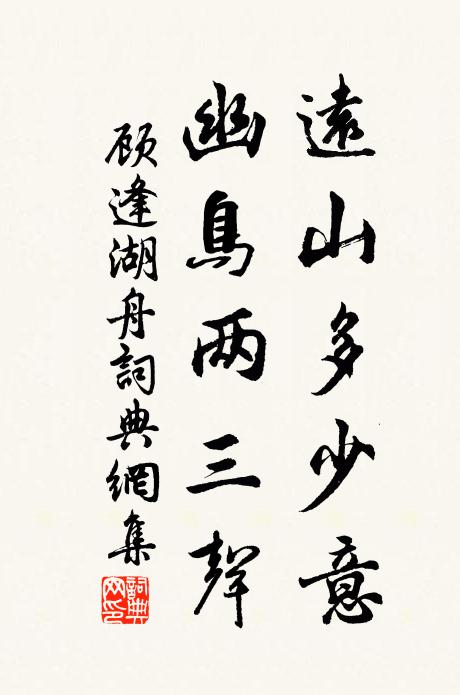 遠山多少意
幽鳥两三聲
顾逢湖舟詞典網集
詞典网印